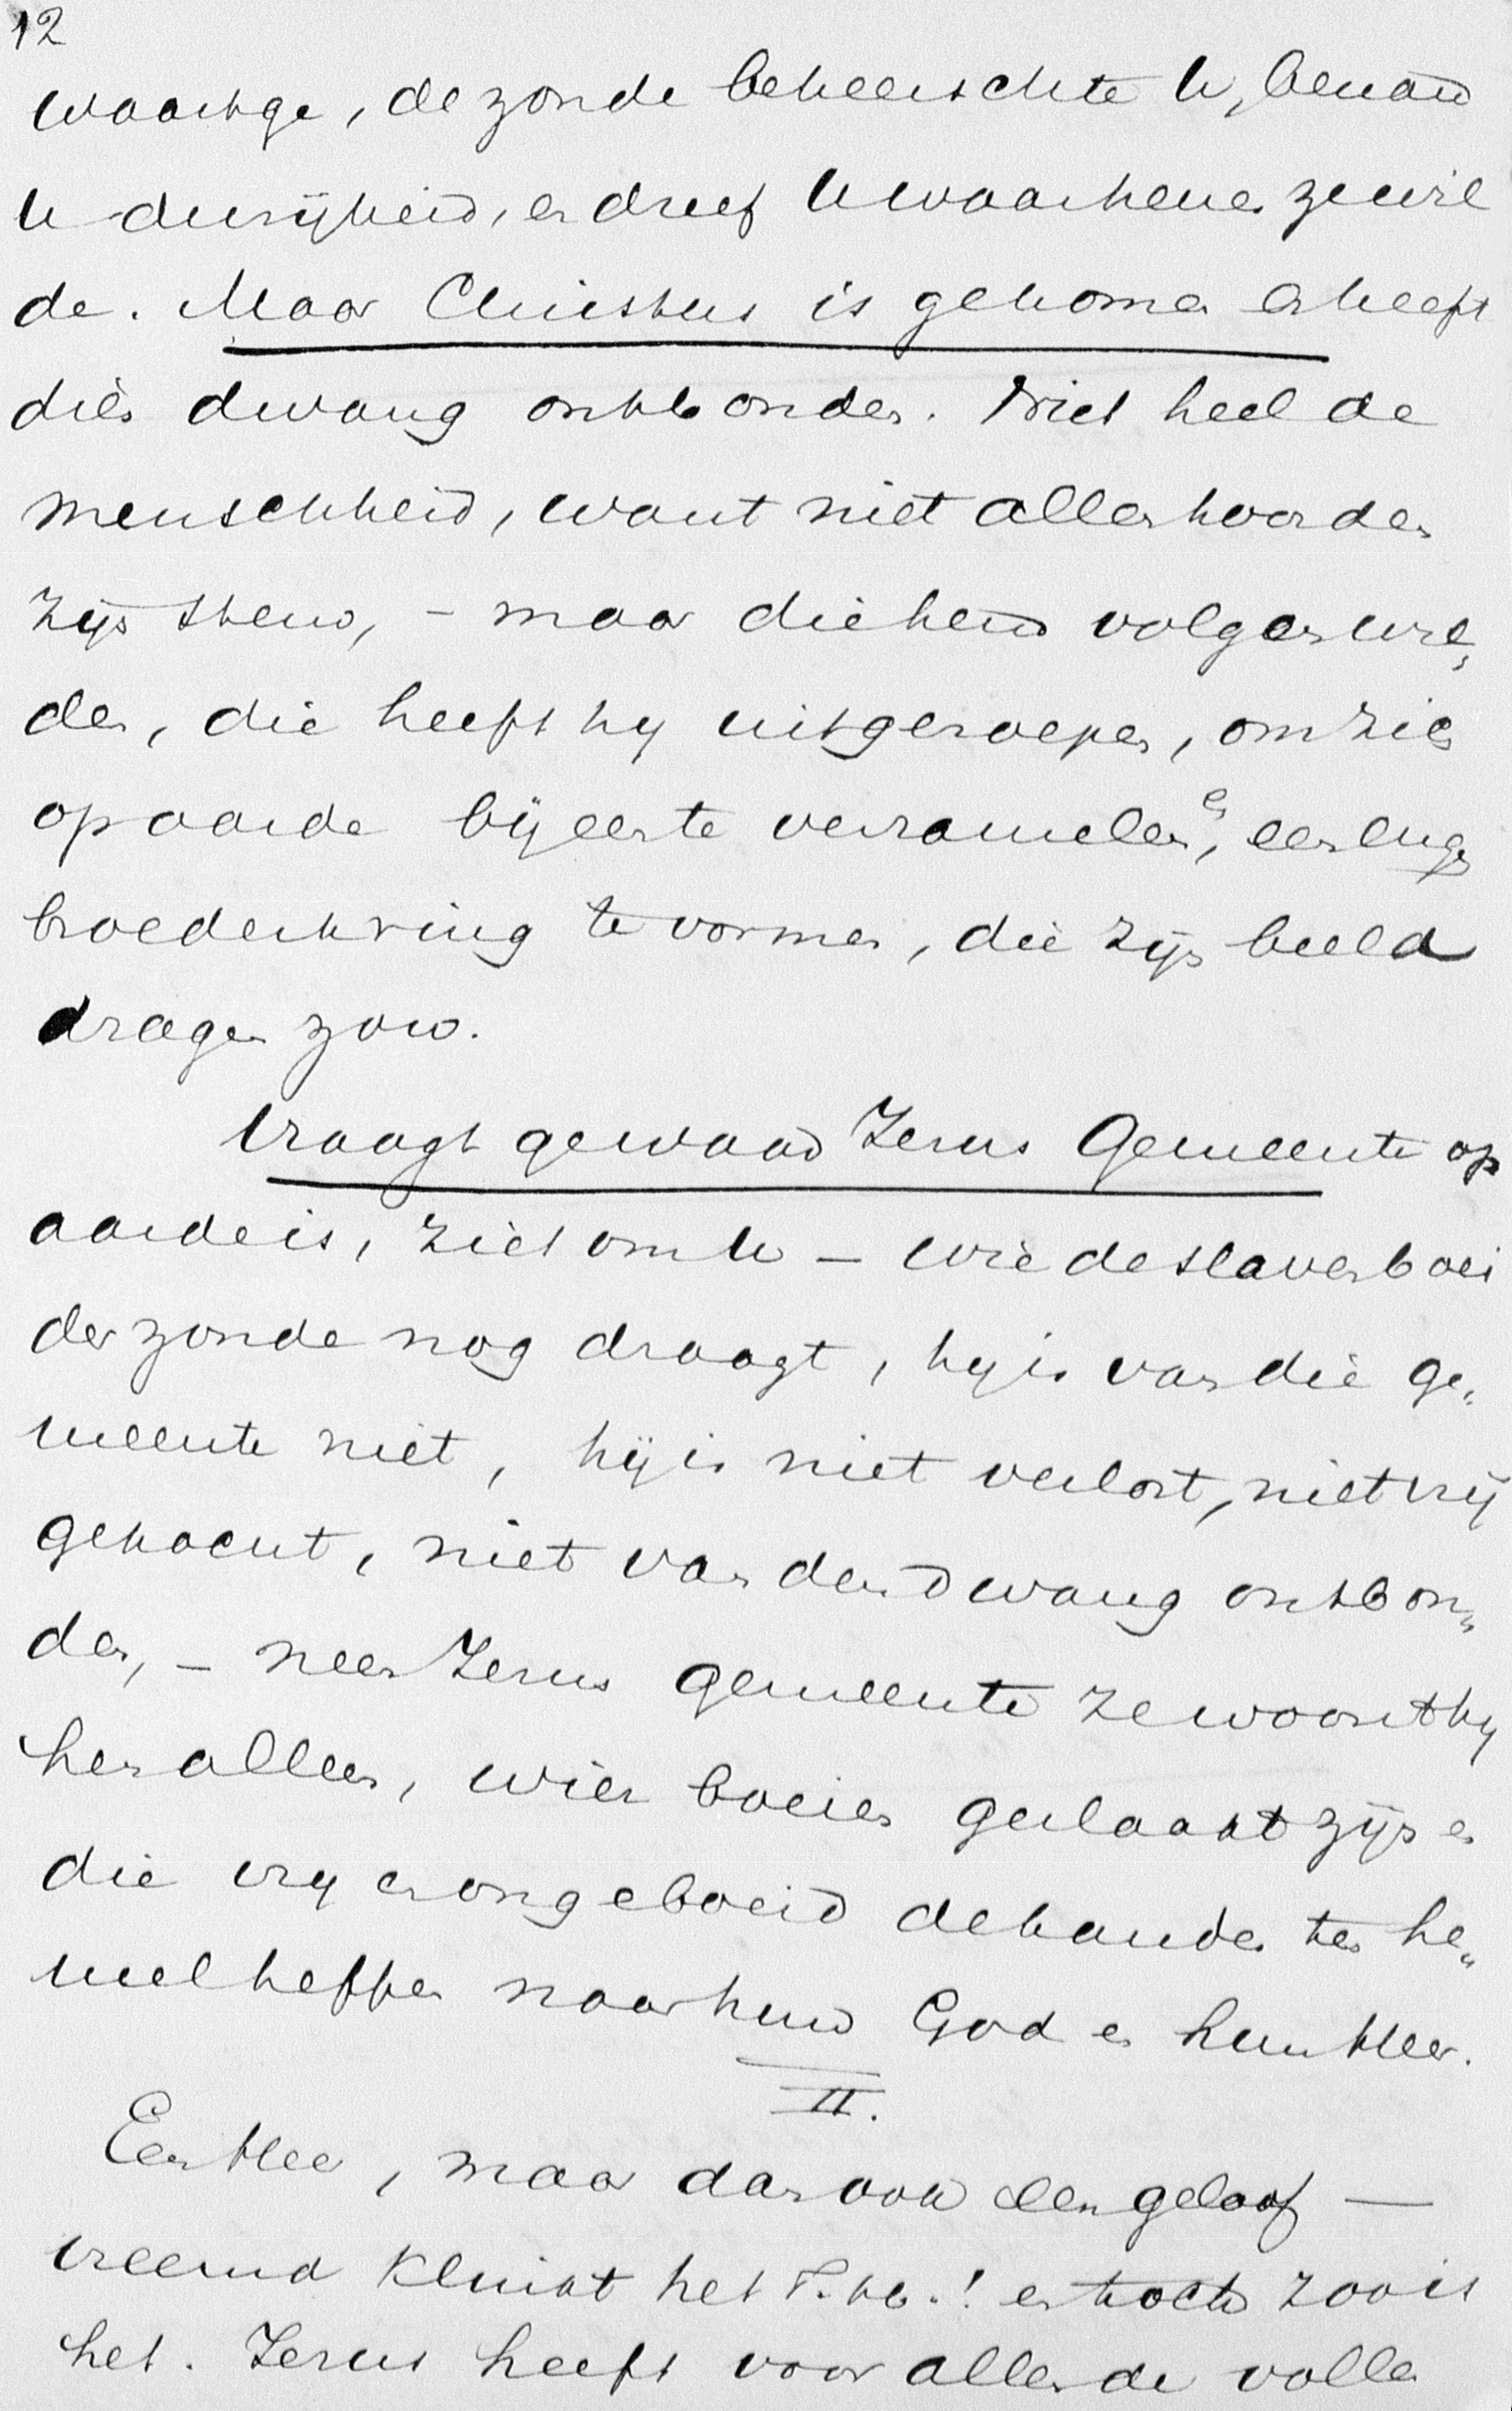 12
waartge, de zonde beheerschte U, benam
U de vrijheid, en dreef U waarhenen ze wil
de. Maar Christus is gekomen en heeft
dien dwang ontbonden. Niet heel de
menschheid, want niet allen hoorden
zijn stem, – maar die hem volgen wil„
den, die heeft hy uitgeroepen, om zich
op aarde bijeen te verzamelen, en een enge
broederkring te vormen, die zijn beeld
dragen zou.
Vraagt ge waar Jezus Gemeente op
aarde is, ziet om U – wie de slavenboei
der zonde nog draagt, hy is van die ge„
meente niet, hij is niet verlost, niet vrij
gekocht, niet van den dwang ontbon„
den, – neen Jezus gemeente ze woont by
hen alleen, wier boeien geslaakt zijn en
die vry en ongeboeid de handen ten he„
mel heffen naar hun God en hun Heer.
II.
Een Heer, maar dan ook een geloof —
vreemd klinkt het ! en toch zoo is
het. Jezus heeft voor allen de volle